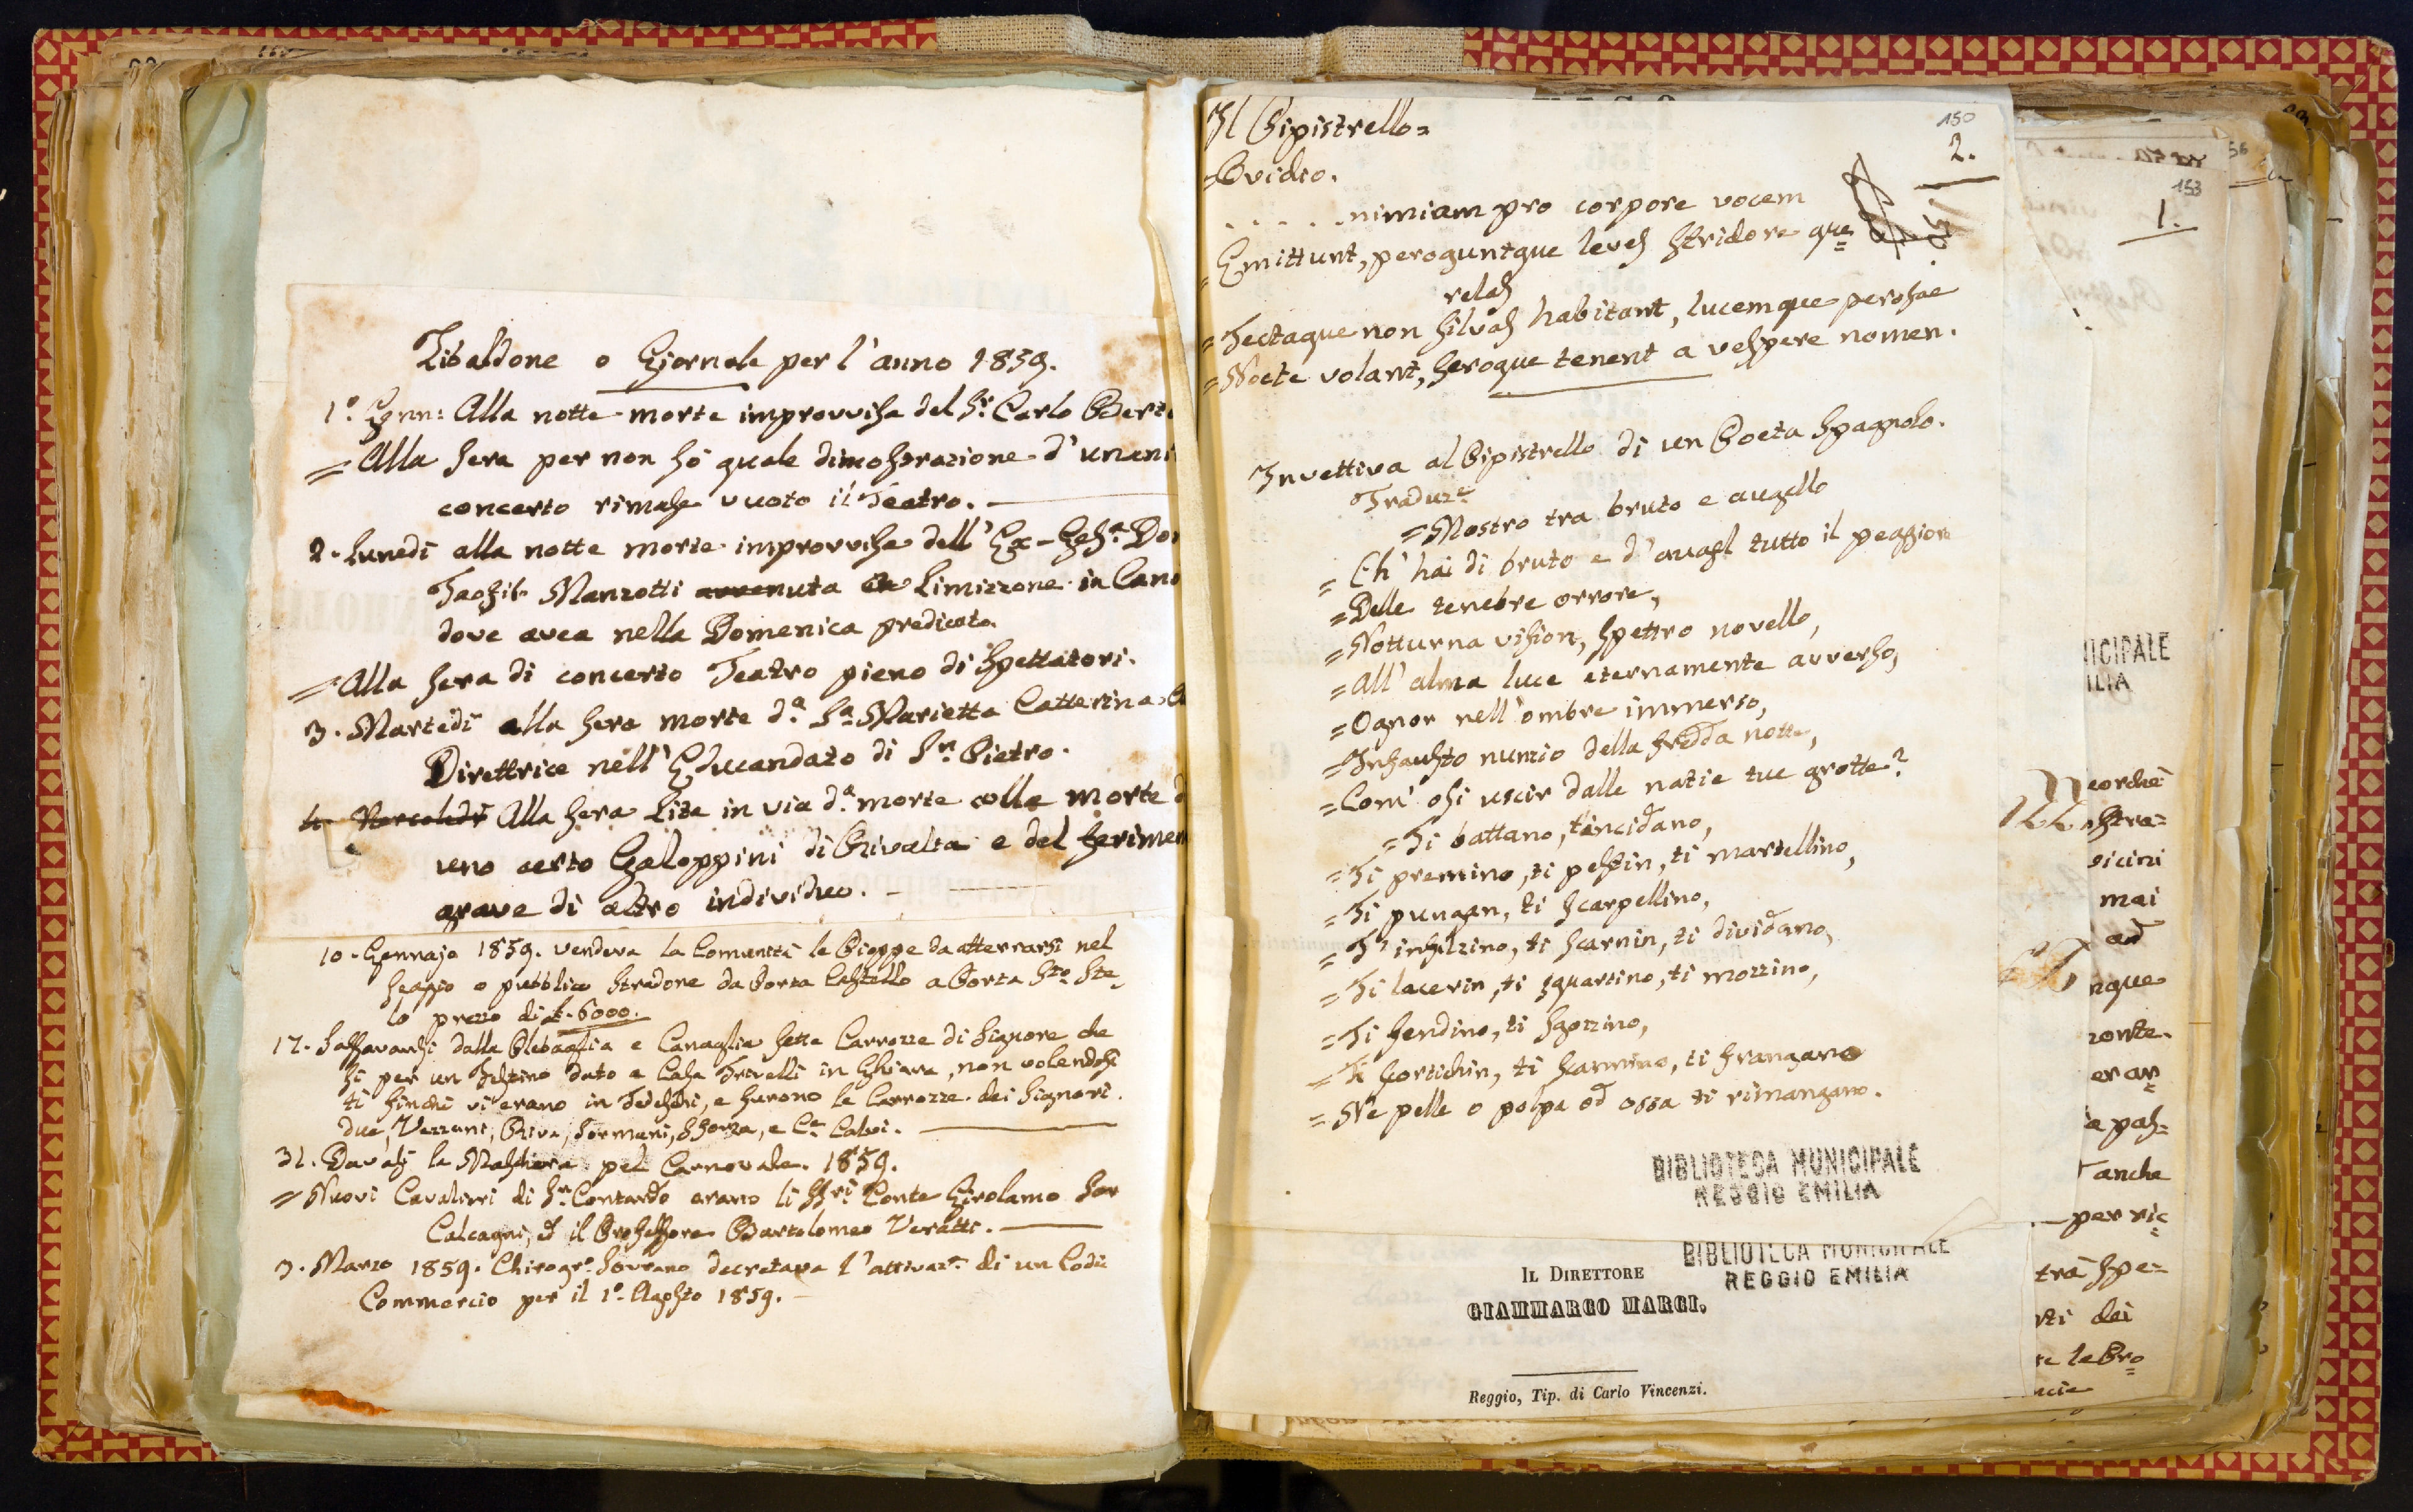 Zibaldone o Giornale per l'anno 1859.
1.° Genn: Alla notte morte improvvisa del Sr. Carlo
= Alla sera per non sò quale dimostrazione d'un
concerto rimase vuoto il Teatro.
2. Lunedì alla notte morte improvvisa dell'Ex-Gesa.
Manzotti avvenuta in Limizzone in
dove avea nella Domenica predicato.
= Alla sera di concerto Teatro pieno di Spettatori.
3. Martedì alla sera morte d.a Sa. Marietta Catterina
Direttrice nell'Educandato di Sn. Pietro.
4. Mercoledì Alla sera Lite in via d.a morte colla morte d
uno certo Galoppini di Rivalta e del ferimen
grave di altro individuo.
10. Gennajo 1859. vendeva la Comunità le Pioppe da atterrarsi nel
o pubblico Stradone da Porta Castello a Porta Sto. Ste
lo prezzo di £. 6000.
17. dalla Plebaglia e Canaglia sette Carrozze di Signore che
si per un Festino dato a Casa Trivelli in Ghiara, non volendosi
ti finchè vi erano in Tedeschi, e furono le Carrozze dei Signori
due, Vezzani, Riva, Sormani, Sforza, e Ce. Calvi.
31. Davasi la Maschera pel Carnovale. 1859.
= Nuovi Cavalieri di Sn. Contardo erano li SSri. Conte Girolamo
Calcagni, ed il Professore Bartolomeo Veratti.
3. Marzo 1859. Chirogro. Sovrano decretava l'attivaze. di un Codic
Commercio per il 1°. Agosto 1859.
150
2.
Il Pipistrello=
=Ovidio.
. . . . . nimiam pro corpore vocem
= Emittunt, peraguntque leves stridore que
relas
= Tectaque non silvas habitant, lucemque perosae
= Nocte volant, seroque tenent a vespere nomen.
Invettiva al Pipistrello di un Poeta Spagnolo.
Traduze.
= Mostro tra bruto e augello
= Ch'hai di bruto e d'augel tutto il peggiore
= Delle tenebre orrore,
= Notturna vision, spettro novello,
= All'alma luce eternamente avverso,
= Ognor nell'ombre immerso,
= Infausto nunzio della fredda notte,
= Com' osi uscir dalle natie tue grotte?
= Ti battano, t'incidano,
= Ti premino, ti pestin, ti martellino,
= Ti pungan, ti scarpellino,
= T'infilzino, ti scarnin, ti dividano,
= Ti lacerin, ti squartino, ti mozzino,
= Ti fendino, ti sgozzino,
= Ti scortichin, ti scannino, ti frangano
= Nè pelle o polpa od ossa ti rimangano.
BIBLIOTECA MUNICIPALE
REGGIO EMILIA
BIBLIOTECA MUNICIPALE
REGGIO EMILIA
IL DIRETTORE
GIAMMARCO MARCI.
Reggio, Tip. di Carlo Vincenzi.
153
1.
56
NICIPALE
ILIA
vicini
mai
ad
nque
zonte.
er ar=
a pas=
anche
per ric=
trà spe=
nti dei
te le Pro=
ncie